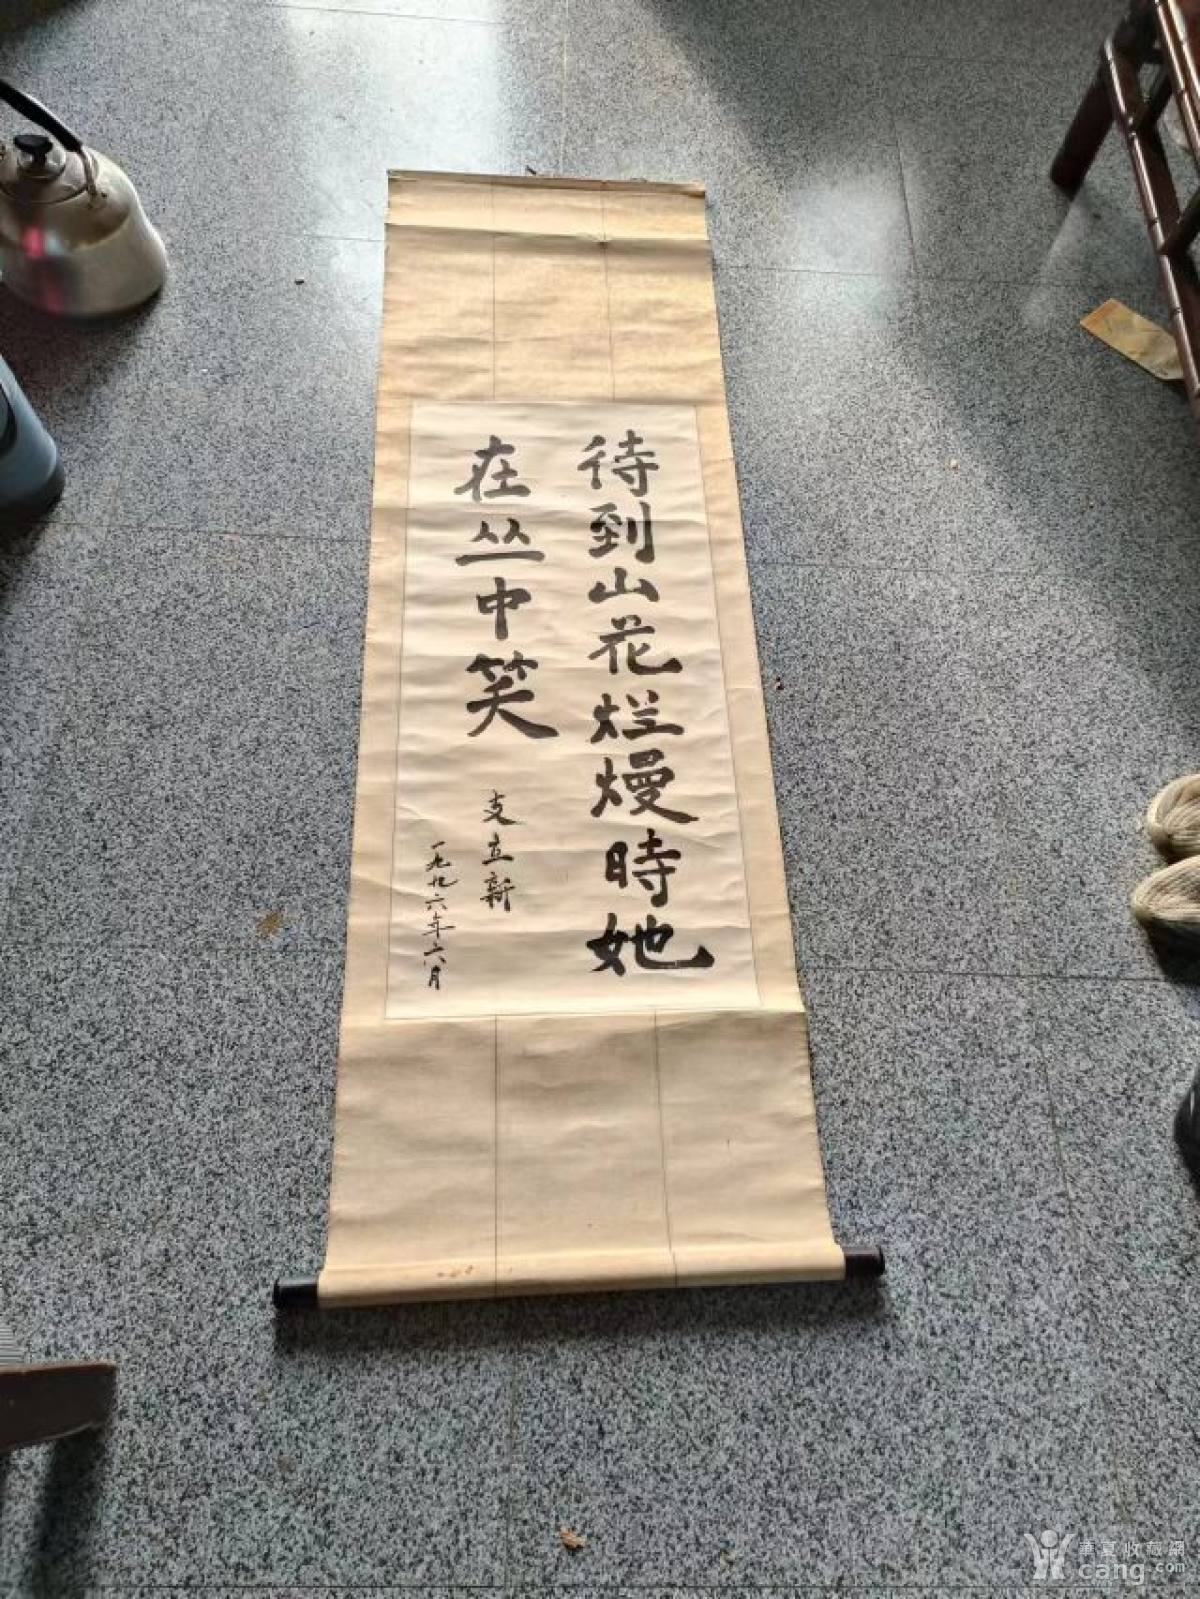 待到山花烂熳時她
在丛中笑
支立新
一九九六年六月
華夏收藏網
cang.com